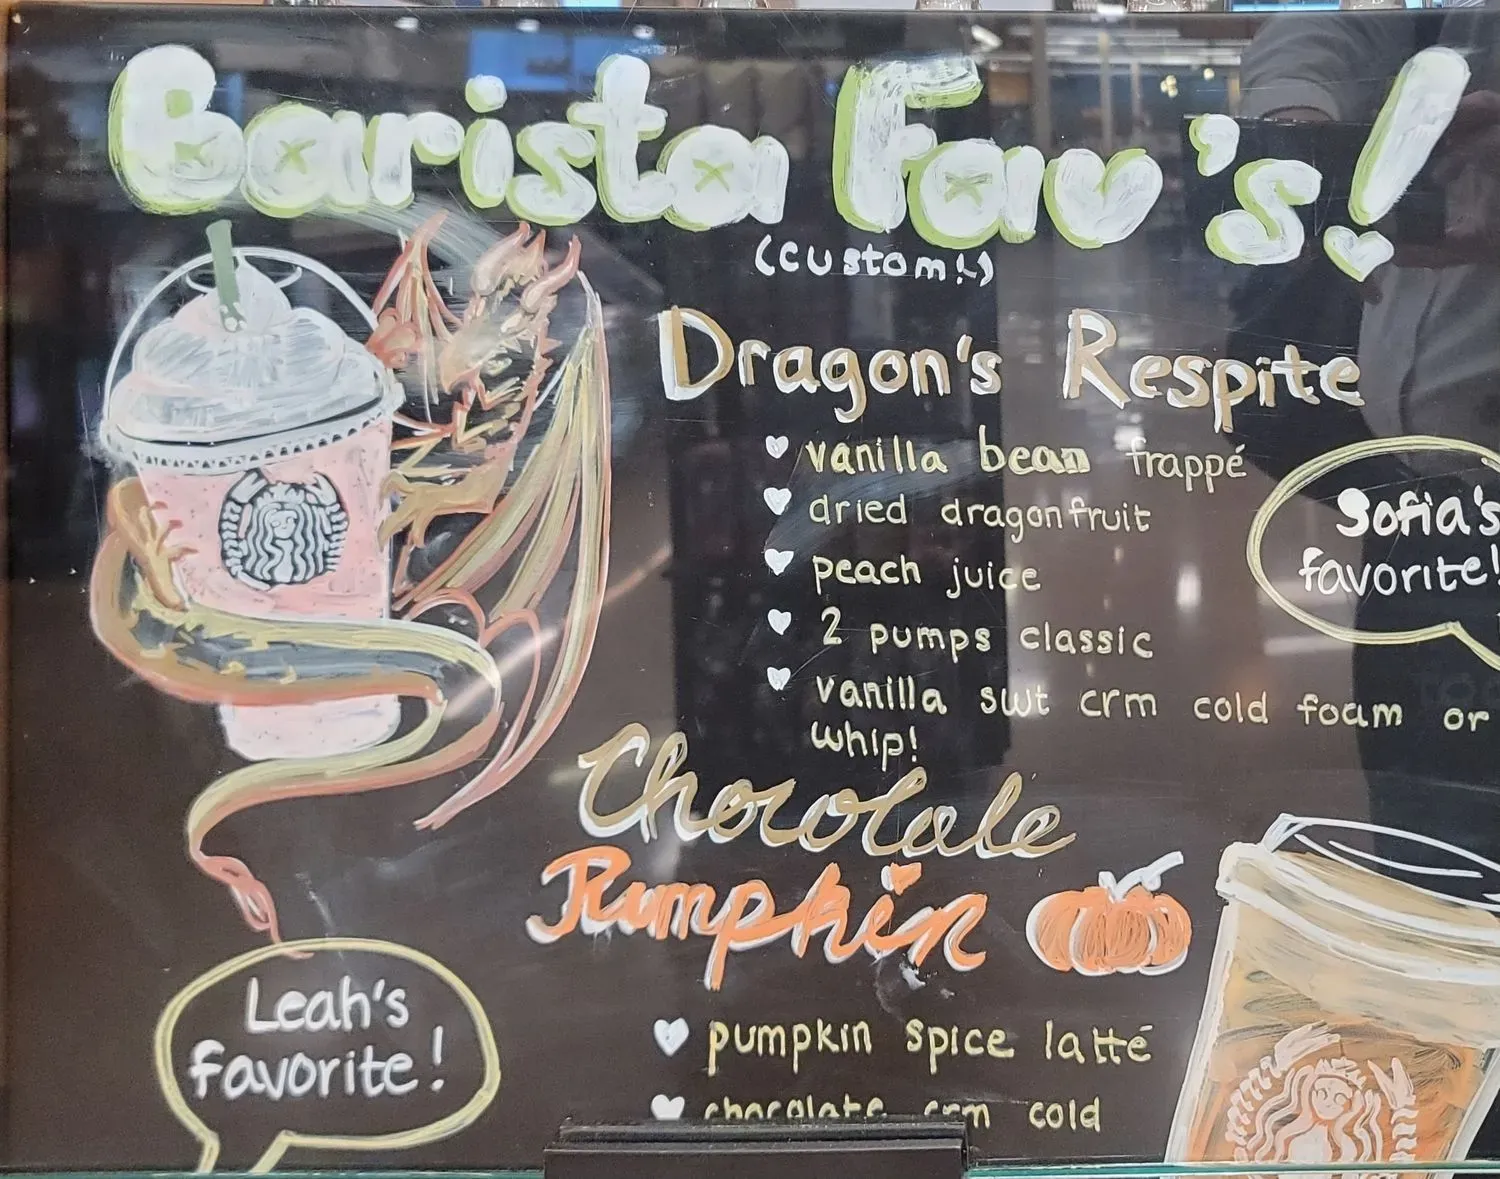 Barista Fav's!
(custom!)
Dragon's Respite
vanilla bean frappé
dried dragonfruit
peach juice
2 pumps classic
vanilla swt crm cold foam or
whip!
Sofia's
favorite!
Chocolate
Pumpkin
pumpkin spice latté
chocolate crm cold
Leah's
favorite!